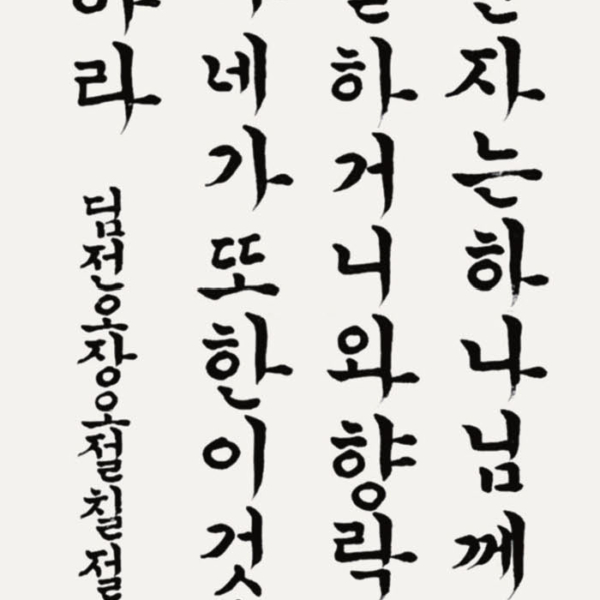 자는하나님께
하거니와향락
네가또한이것
라
딤전오장오절칠절